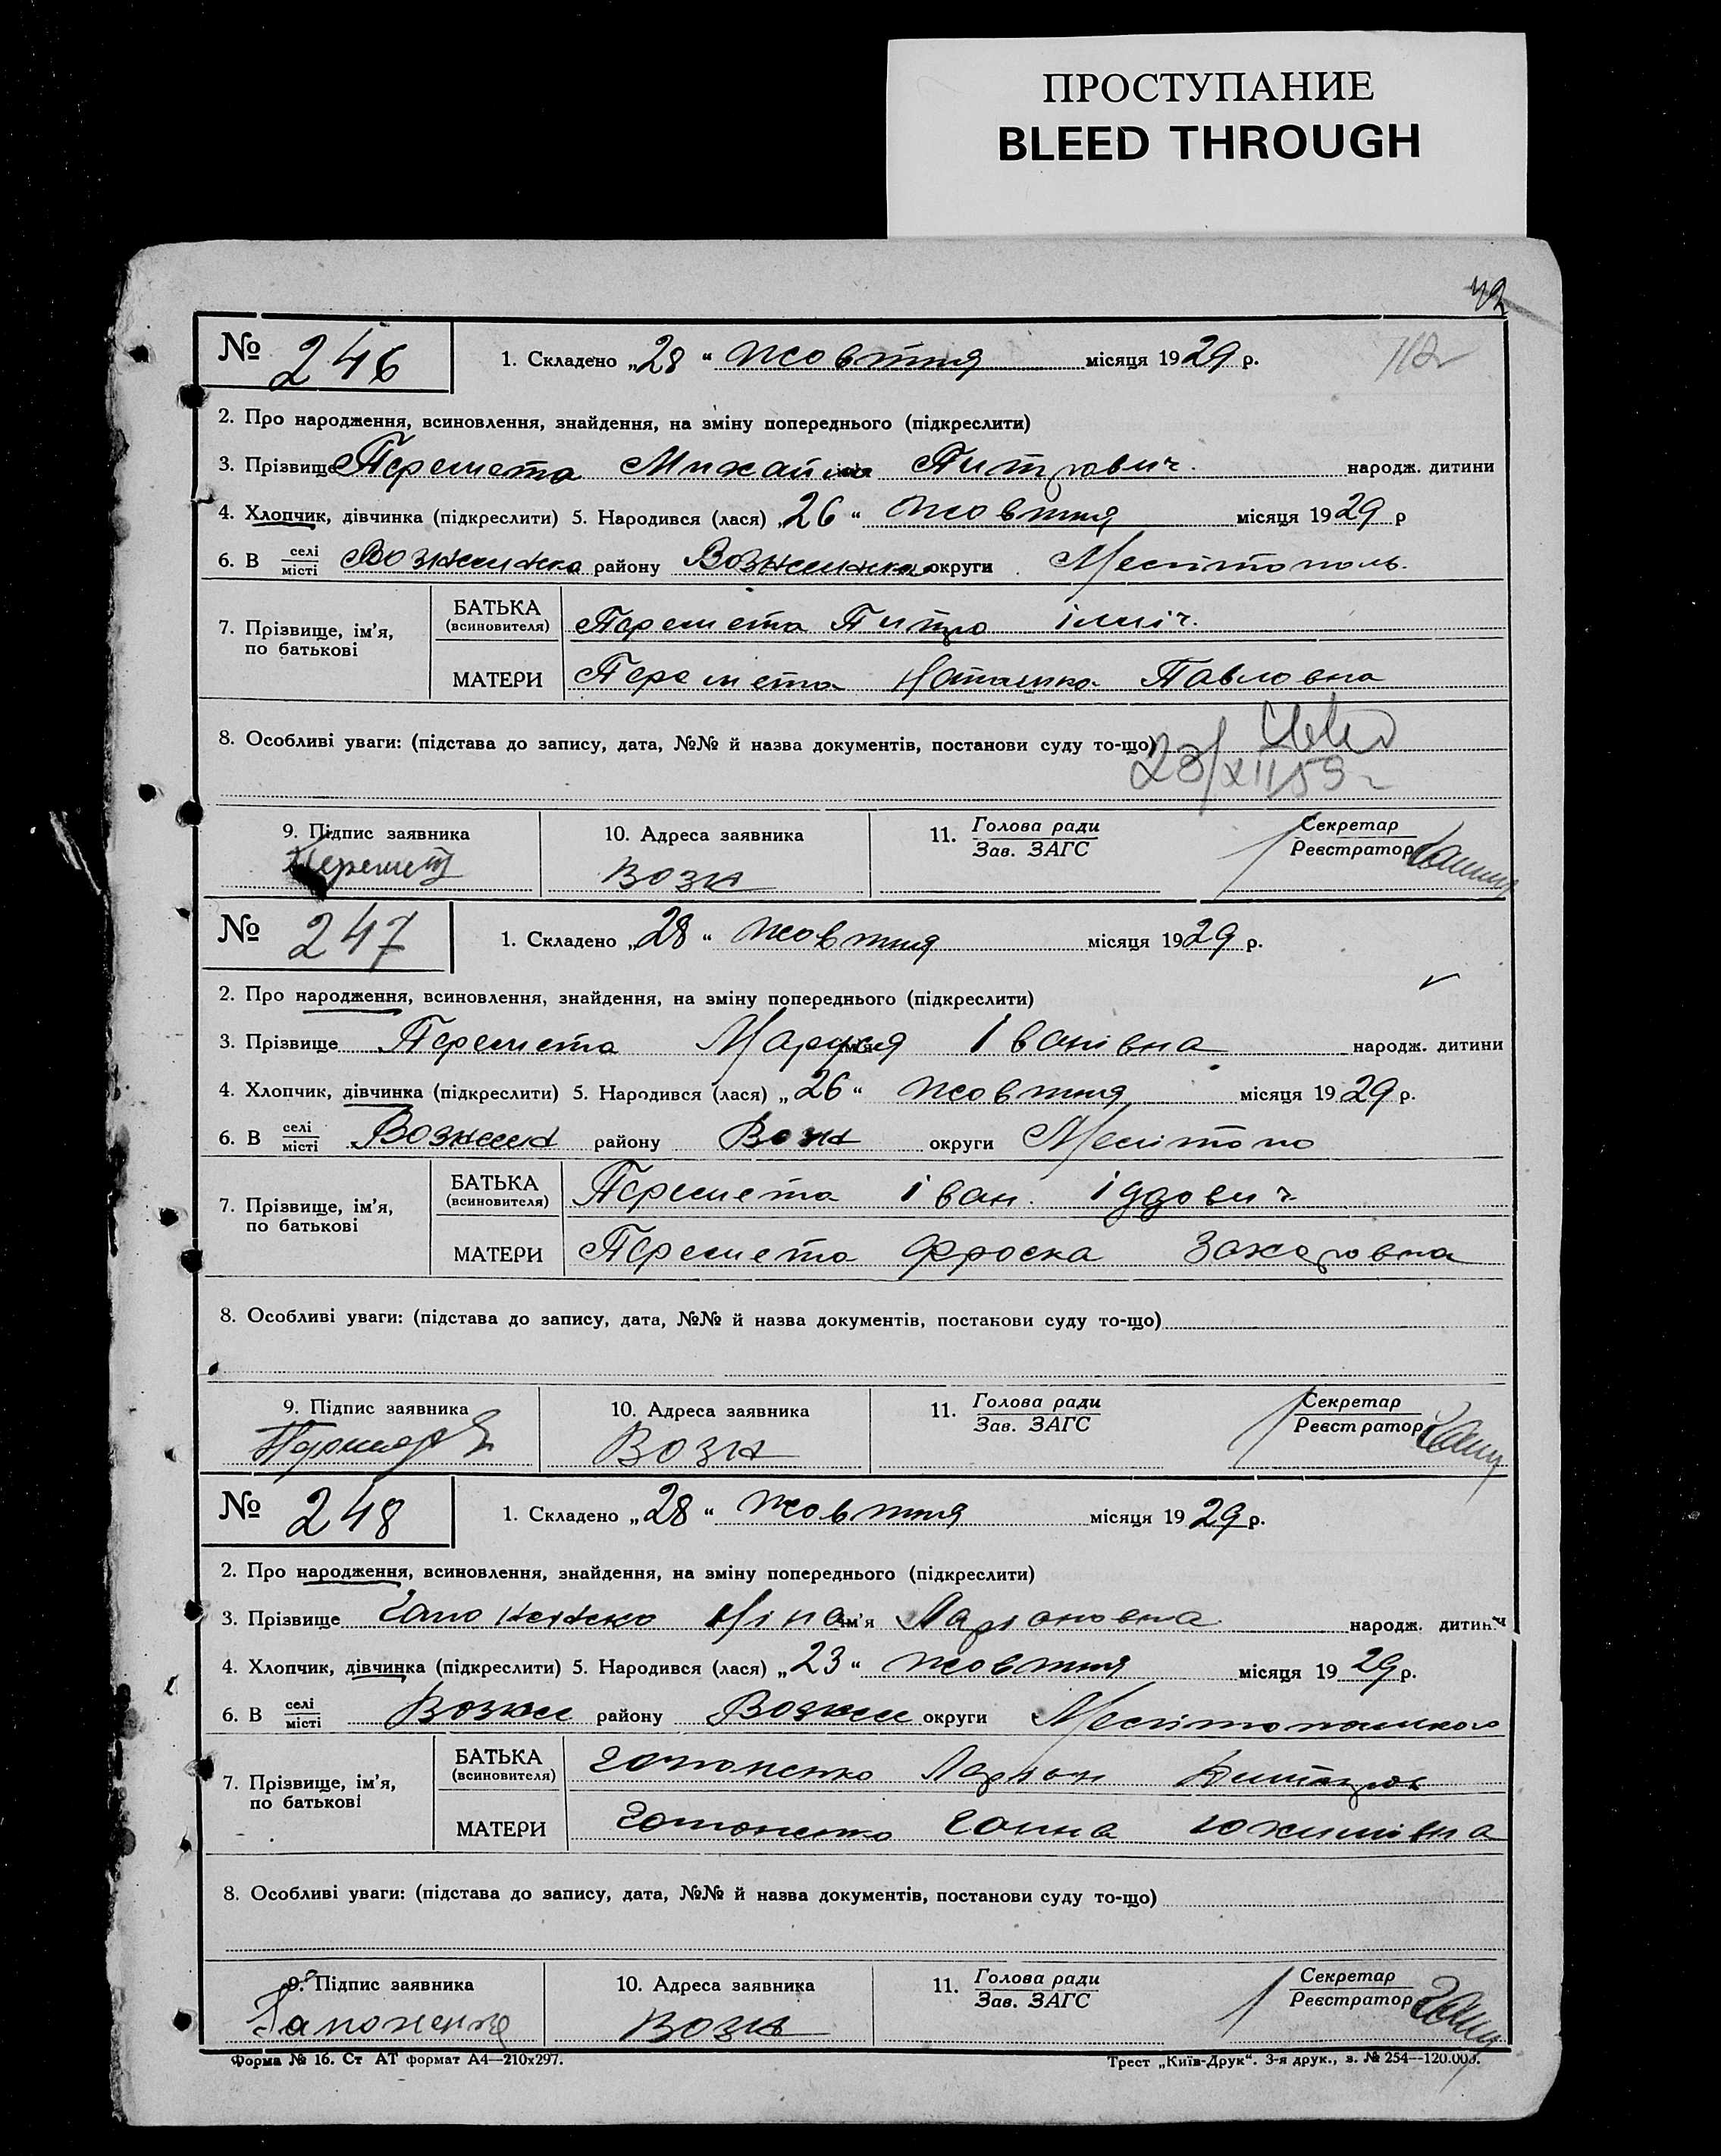 ПРОСТУПАНИЕ
BLEED THROUGH
№ 246 1. Складено „28“ жовтня місяця 1929 р.
2. Про народження, всиновлення, знайдення, на зміну попереднього (підкреслити)
3. Прізвище Перемета Михайло Питрович народж. дитини
4. Хлопчик, дівчинка (підкреслити) 5. Народився (лася) „26“ жовтня місяця 1929 р
6. В селі/місті району округи Мелітополь
7. Прізвище, ім’я, по батькові
БАТЬКА (всиновителя) Перемета Питро Ілліч.
МАТЕРИ Перемета Наташка Павловна
8. Особливі уваги: (підстава до запису, дата, №№ й назва документів, постанови суду то-що)
9. Підпис заявника 10. Адреса заявника 11. Голова ради/Зав. ЗАГС Секретар/Реєстратор
Возн
№ 247 1. Складено „28“ жовтня місяця 1929 р.
2. Про народження, всиновлення, знайдення, на зміну попереднього (підкреслити)
3. Прізвище Перемета Маруся ім’я Іванівна народж. дитини
4. Хлопчик, дівчинка (підкреслити) 5. Народився (лася) „26“ жовтня місяця 1929 р.
6. В селі/місті району Возн округи Мелітопо
7. Прізвище, ім’я, по батькові
БАТЬКА (всиновителя) Перемета Іван.
МАТЕРИ Перемета Фроска Захаровна
8. Особливі уваги: (підстава до запису, дата, №№ й назва документів, постанови суду то-що)
9. Підпис заявника 10. Адреса заявника 11. Голова ради/Зав. ЗАГС Секретар/Реєстратор
Возн
№ 248 1. Складено „28“ жовтня місяця 1929 р.
2. Про народження, всиновлення, знайдення, на зміну попереднього (підкреслити)
3. Прізвище Гапоненко Ніна ім’я Ларіоновна народж. дитини
4. Хлопчик, дівчинка (підкреслити) 5. Народився (лася) „23“ жовтня місяця 1929 р.
6. В селі/місті району округи
7. Прізвище, ім’я, по батькові
БАТЬКА (всиновителя) Гапоненко Ларіон
МАТЕРИ Гапоненко Ганна Юхимівна
8. Особливі уваги: (підстава до запису, дата, №№ й назва документів, постанови суду то-що)
9. Підпис заявника 10. Адреса заявника 11. Голова ради/Зав. ЗАГС Секретар/Реєстратор
Гапоненко Возн
Форма № 16. Ст АТ формат А4—210х297. Трест „Київ-Друк“. 3-я друк., з. № 254—120.000.